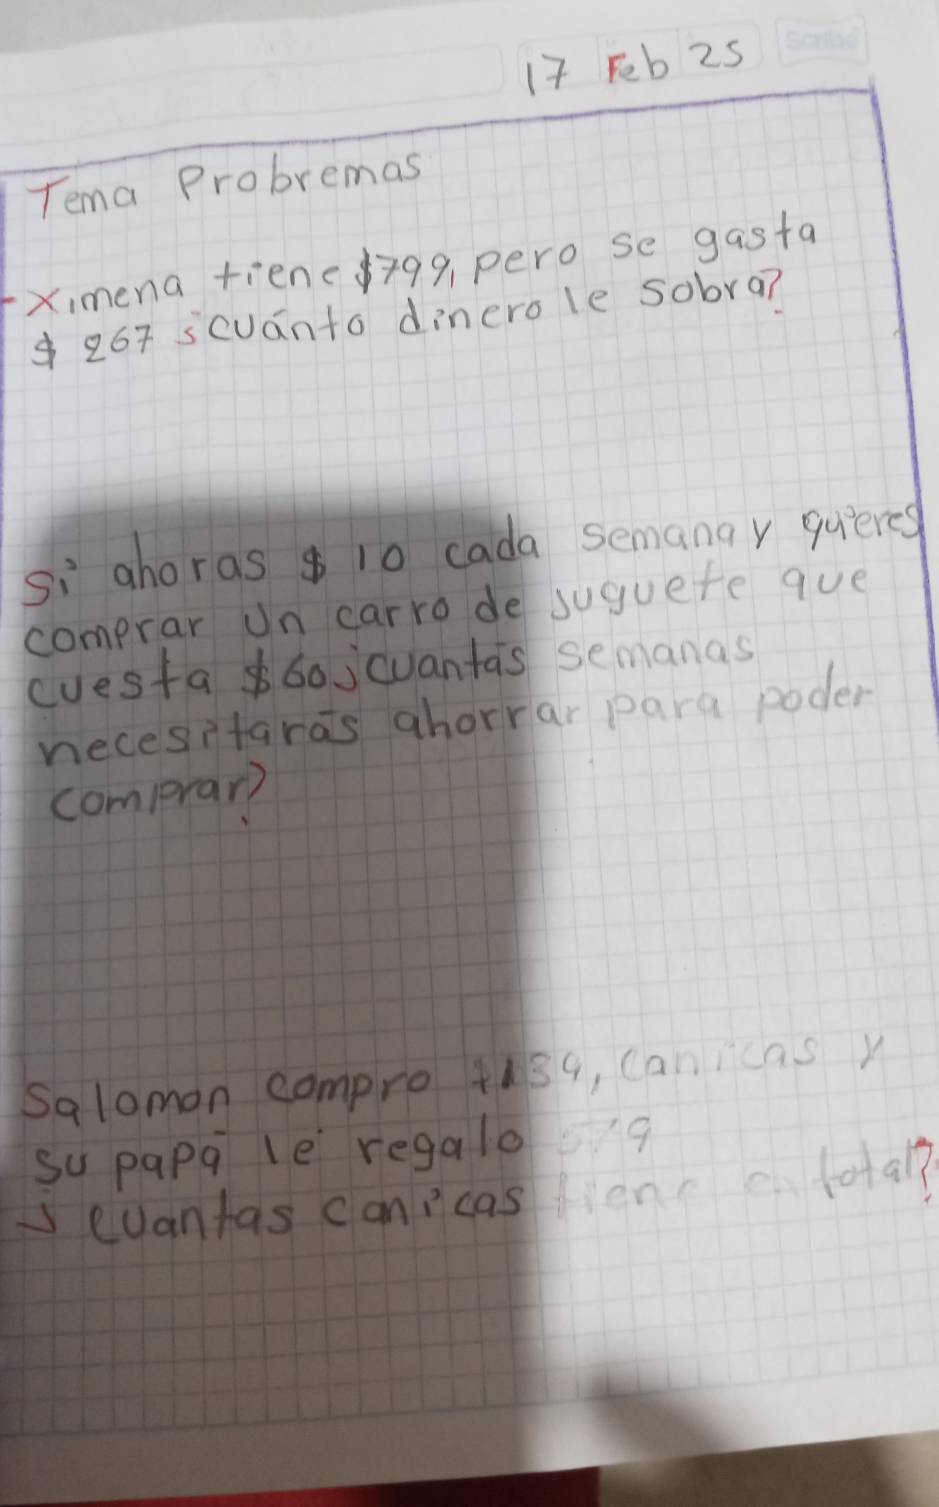 Scribe
17 Feb 25
Tema Probremas
-Ximena tiene $799, pero se gasta
$ 267 ¿cuánto dinero le sobra?
Si ahoras $ 10 cada semana y quieres
comprar Un carro de juguete que
cuesta $60 ¿cuantas semanas
necesitarás ahorrar para poder
comprar?
Salomon compro canicas y
su papá le regalo
¿cuantas canicas tiene en total?